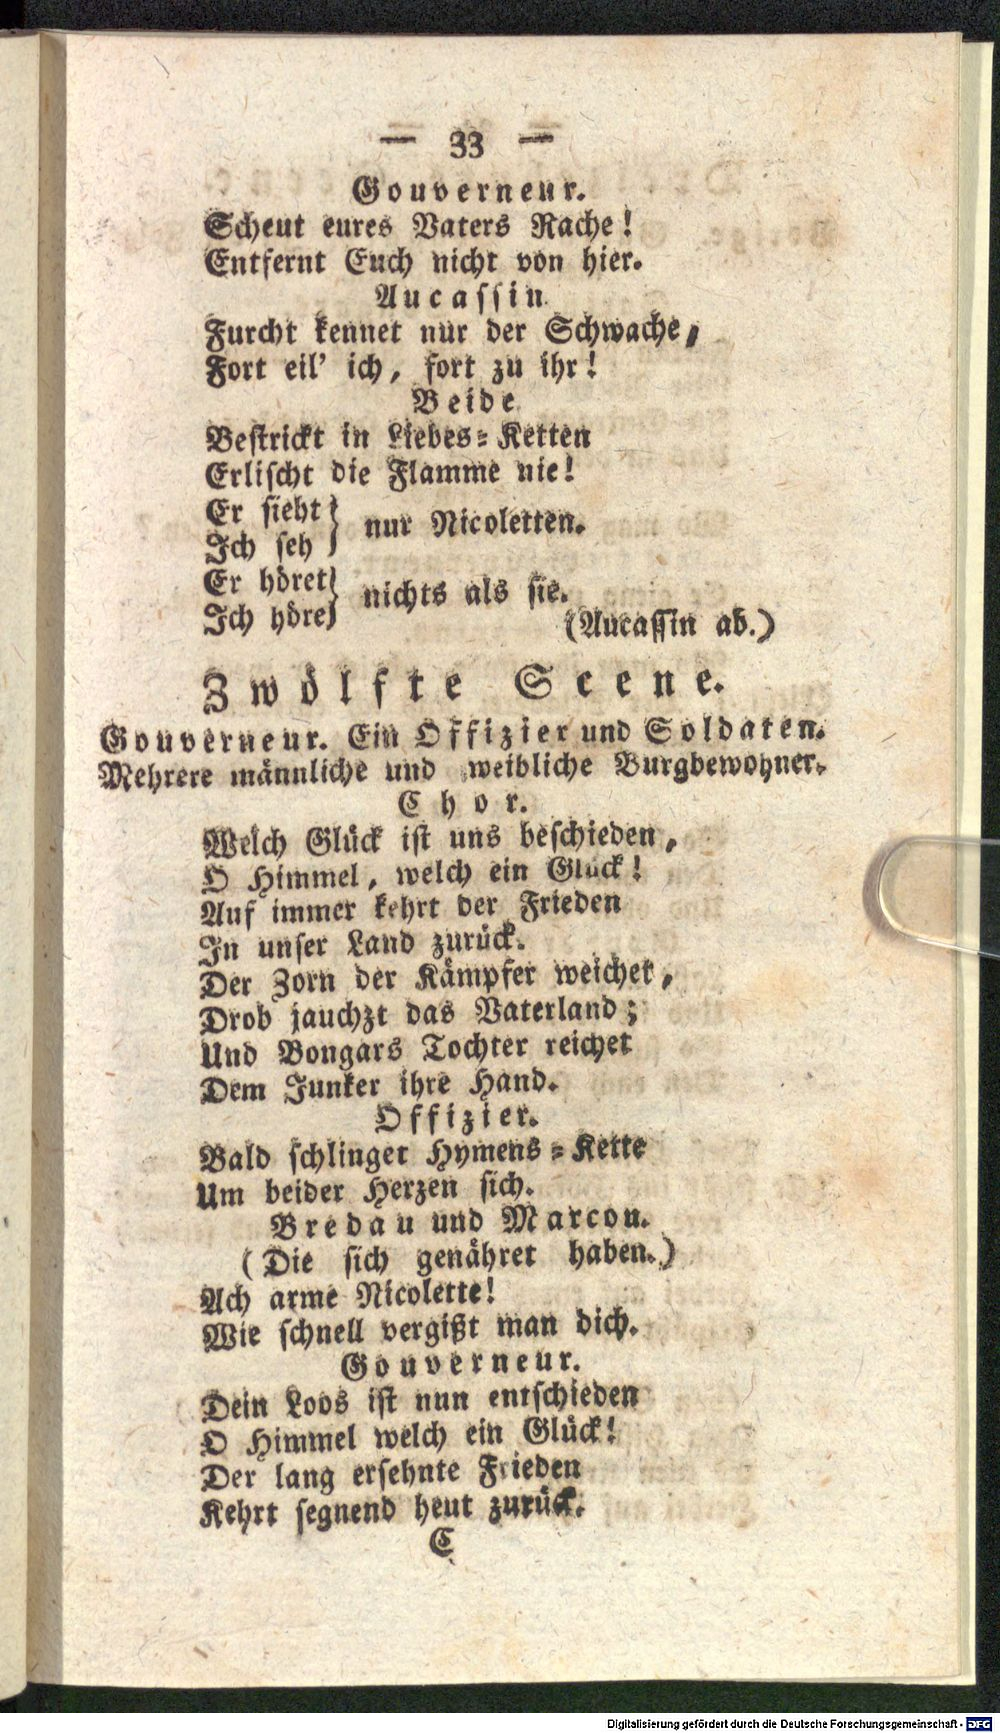 — 33 —
Gouverneur.
Scheut eures Vaters Rache!
Entfernt Euch nicht von hier.
Aucassin.
Furcht kennet nur der Schwache,
Fort eil' ich, fort zu ihr!
Beide.
Bestrickt in Liebes-Ketten
Erlischt die Flamme nie!
Er sieht
Ich seh } nur Nicoletten.
Er höret
Ich höre } nichts als sie.
(Aucassin ab.)
Zwölfte Scene.
Gouverneur. Ein Offizier und Soldaten.
Mehrere männliche und weibliche Burgbewohner.
Chor.
Welch Glück ist uns beschieden,
O Himmel, welch ein Glück!
Auf immer kehrt der Frieden
In unser Land zurück.
Der Zorn der Kämpfer weichet,
Drob jauchzt das Vaterland;
Und Bongars Tochter reichet
Dem Junker ihre Hand.
Offizier.
Bald schlinget Hymens-Kette
Um beider Herzen sich.
Bredau und Marcon.
(Die sich genähret haben.)
Ach arme Nicolette!
Wie schnell vergißt man dich.
Gouverneur.
Dein Loos ist nun entschieden
O Himmel welch ein Glück!
Der lang ersehnte Frieden
Kehrt segnend heut zurück.
C
Digitalisierung gefördert durch die Deutsche Forschungsgemeinschaft - DFG